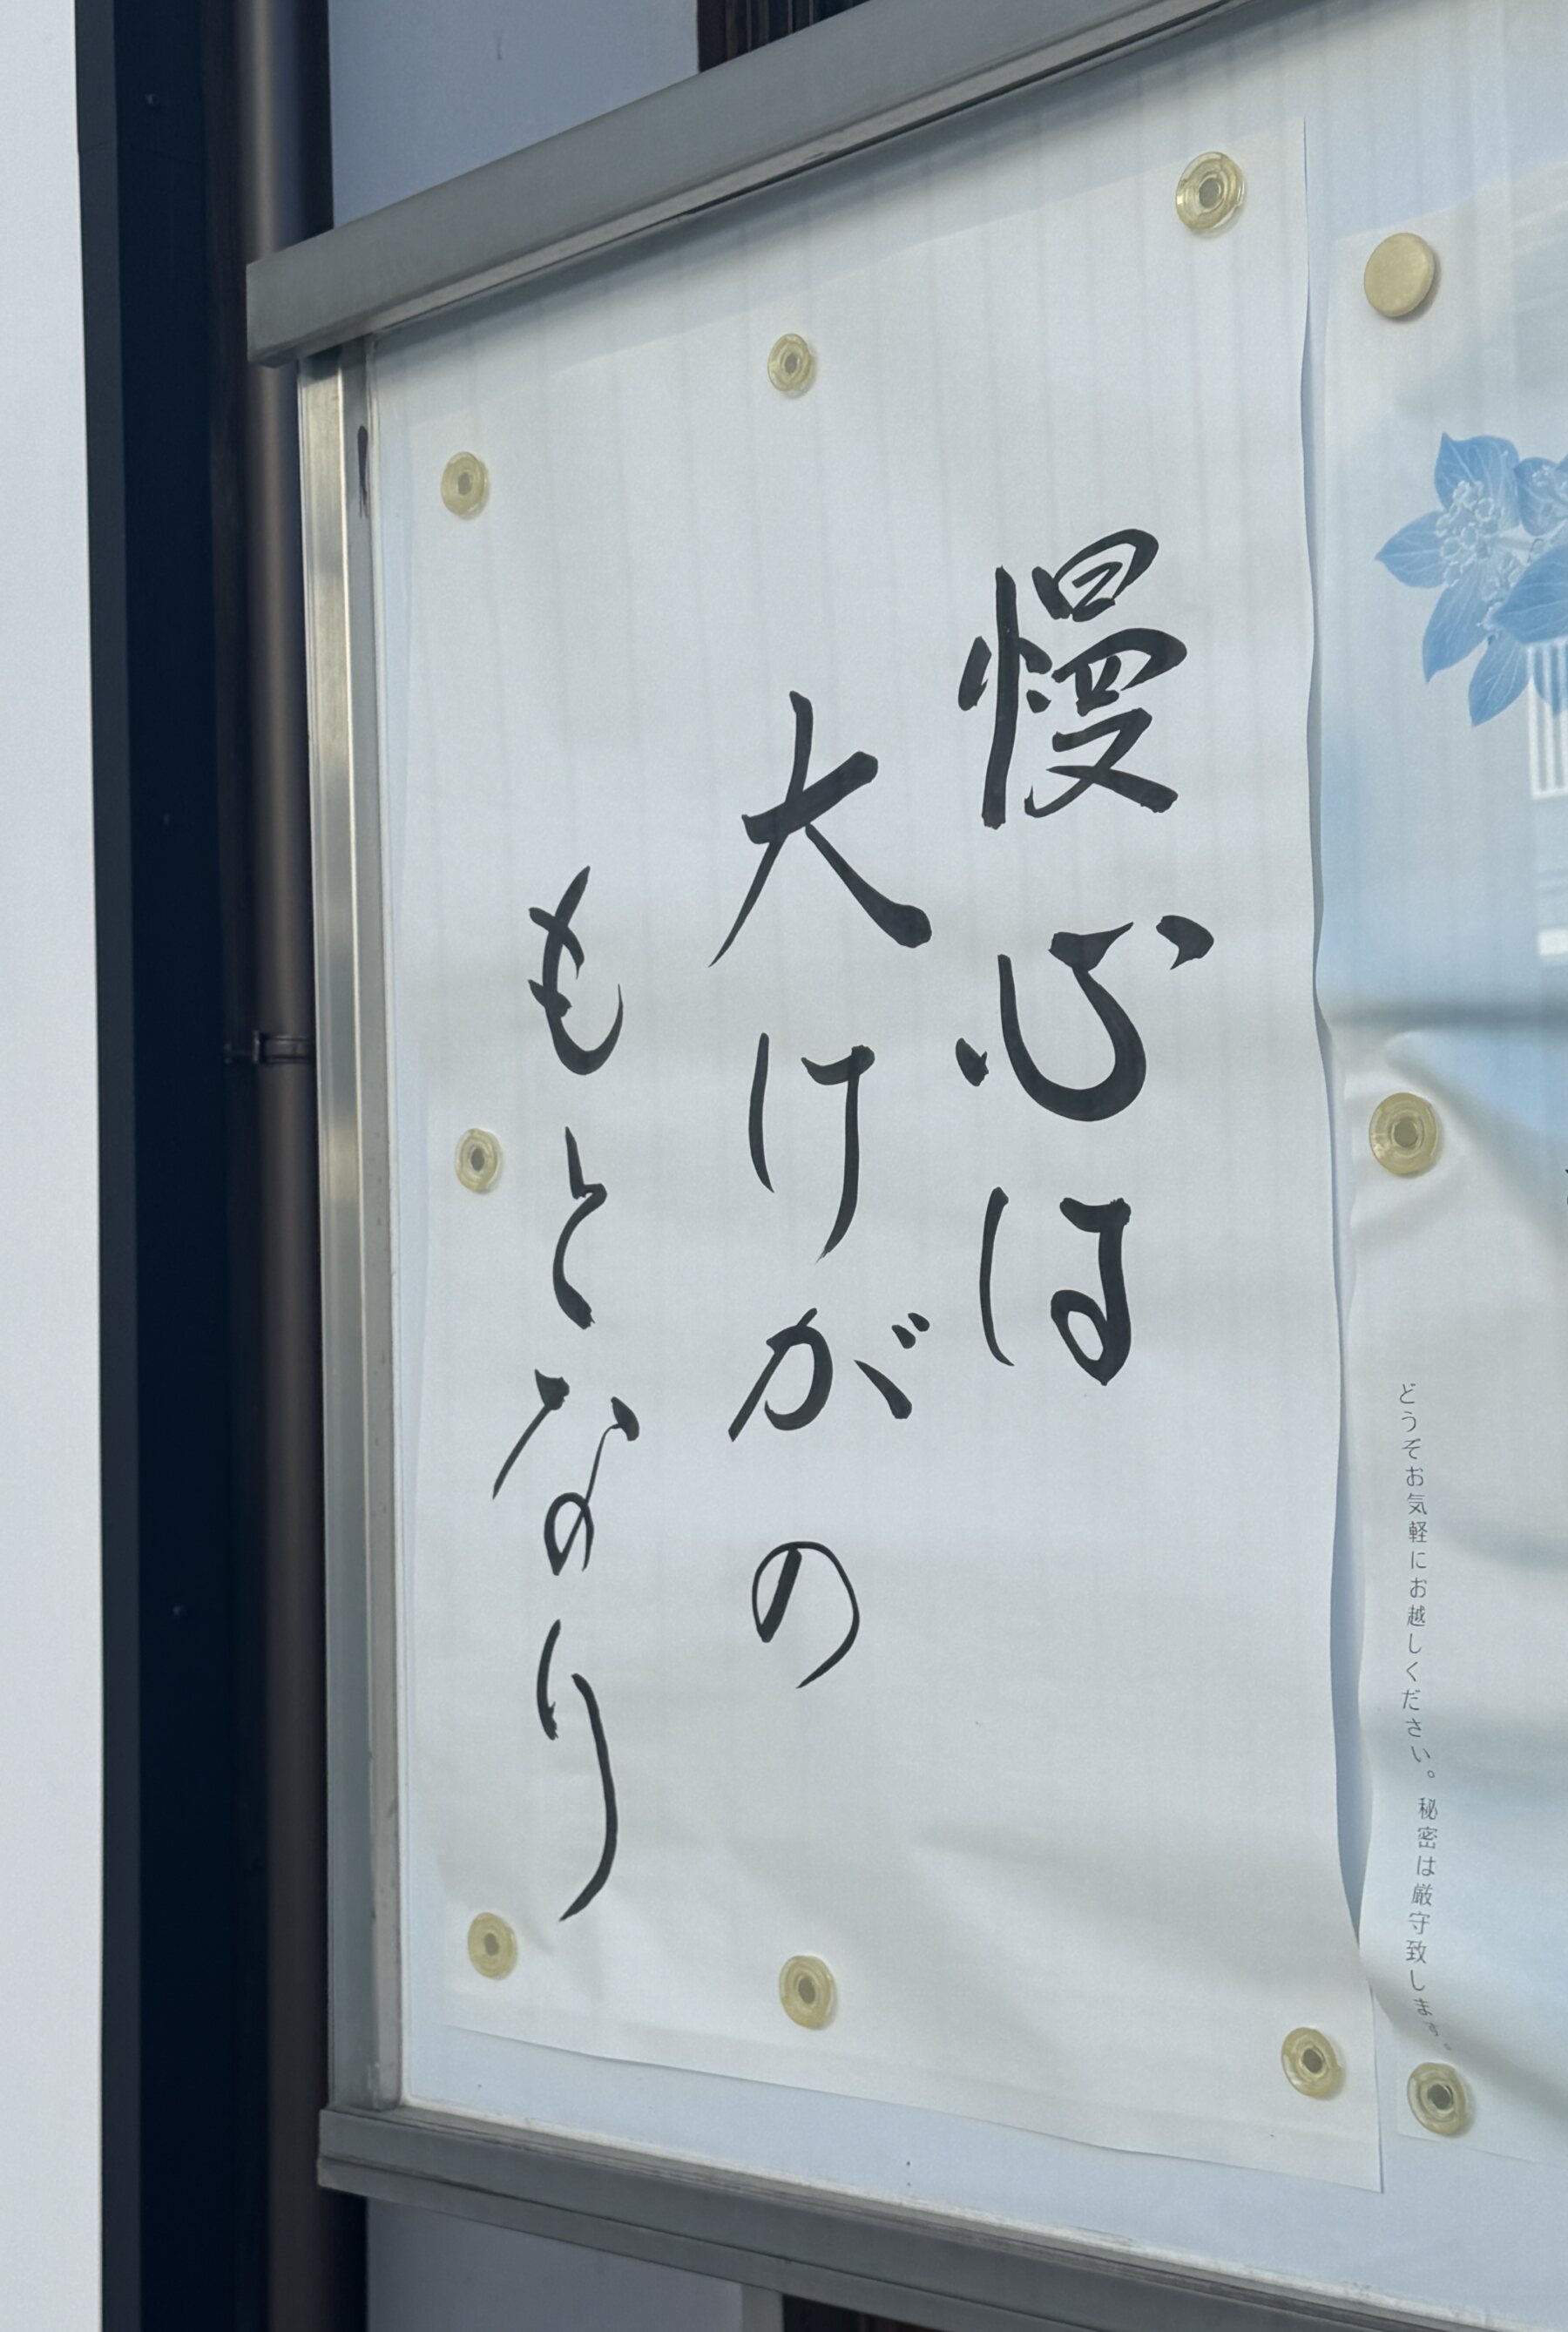 慢心は
大けがの
もとなり
どうぞお気軽にお越しください。秘密は厳守致します。